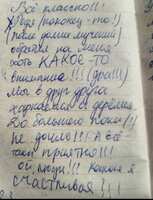 Всё классно!!!
Федя (наконец-то!)
(после долгих мучений)
обратил на меня
хоть КАКОЕ-ТО
внимание!!! (ура!!!)
Мы в друг друга
с дерева
До большего пока (!)
не дошло!!! А всё
таки приятно!!!
Ой, люди!! Какая я
счастливая!!!